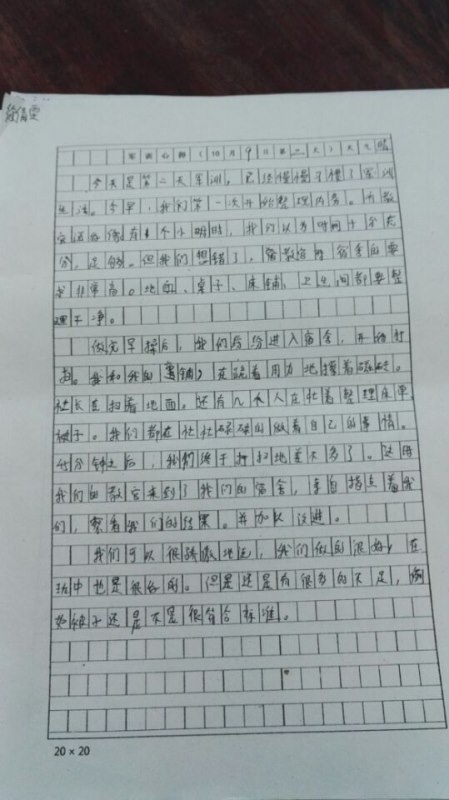 军训心得（10月9日第二天）天气晴
今天是第二天军训，已经慢慢习惯了军训
生活。今早，我们第一次开始整理内务。听教
官说给你有1个小时时，我们以为时间十分充
分，足够。但我们想错了，宿舍的要
求非常高。地面、桌子、床铺、卫生间都要整
理干净。
做完早操后，我们纷纷进入宿舍，开始打
扫。我和我的在跪着用力地擦着瓷砖。
社长在扫着地面。还有几个人在忙着整理床单
被子。我们都在忙忙碌碌的做着自己的事情。
45分钟之后，我们终于打扫地差不多了。这时
我们的教官来到了我们的宿舍，亲自指点着我
们，察看我们的结果。并加以改进。
我们可以很骄傲地说，我们做的很好，在
班中也是很的。但是还是有很多的不足，例
如被子还是不是很符合标准。
20×20